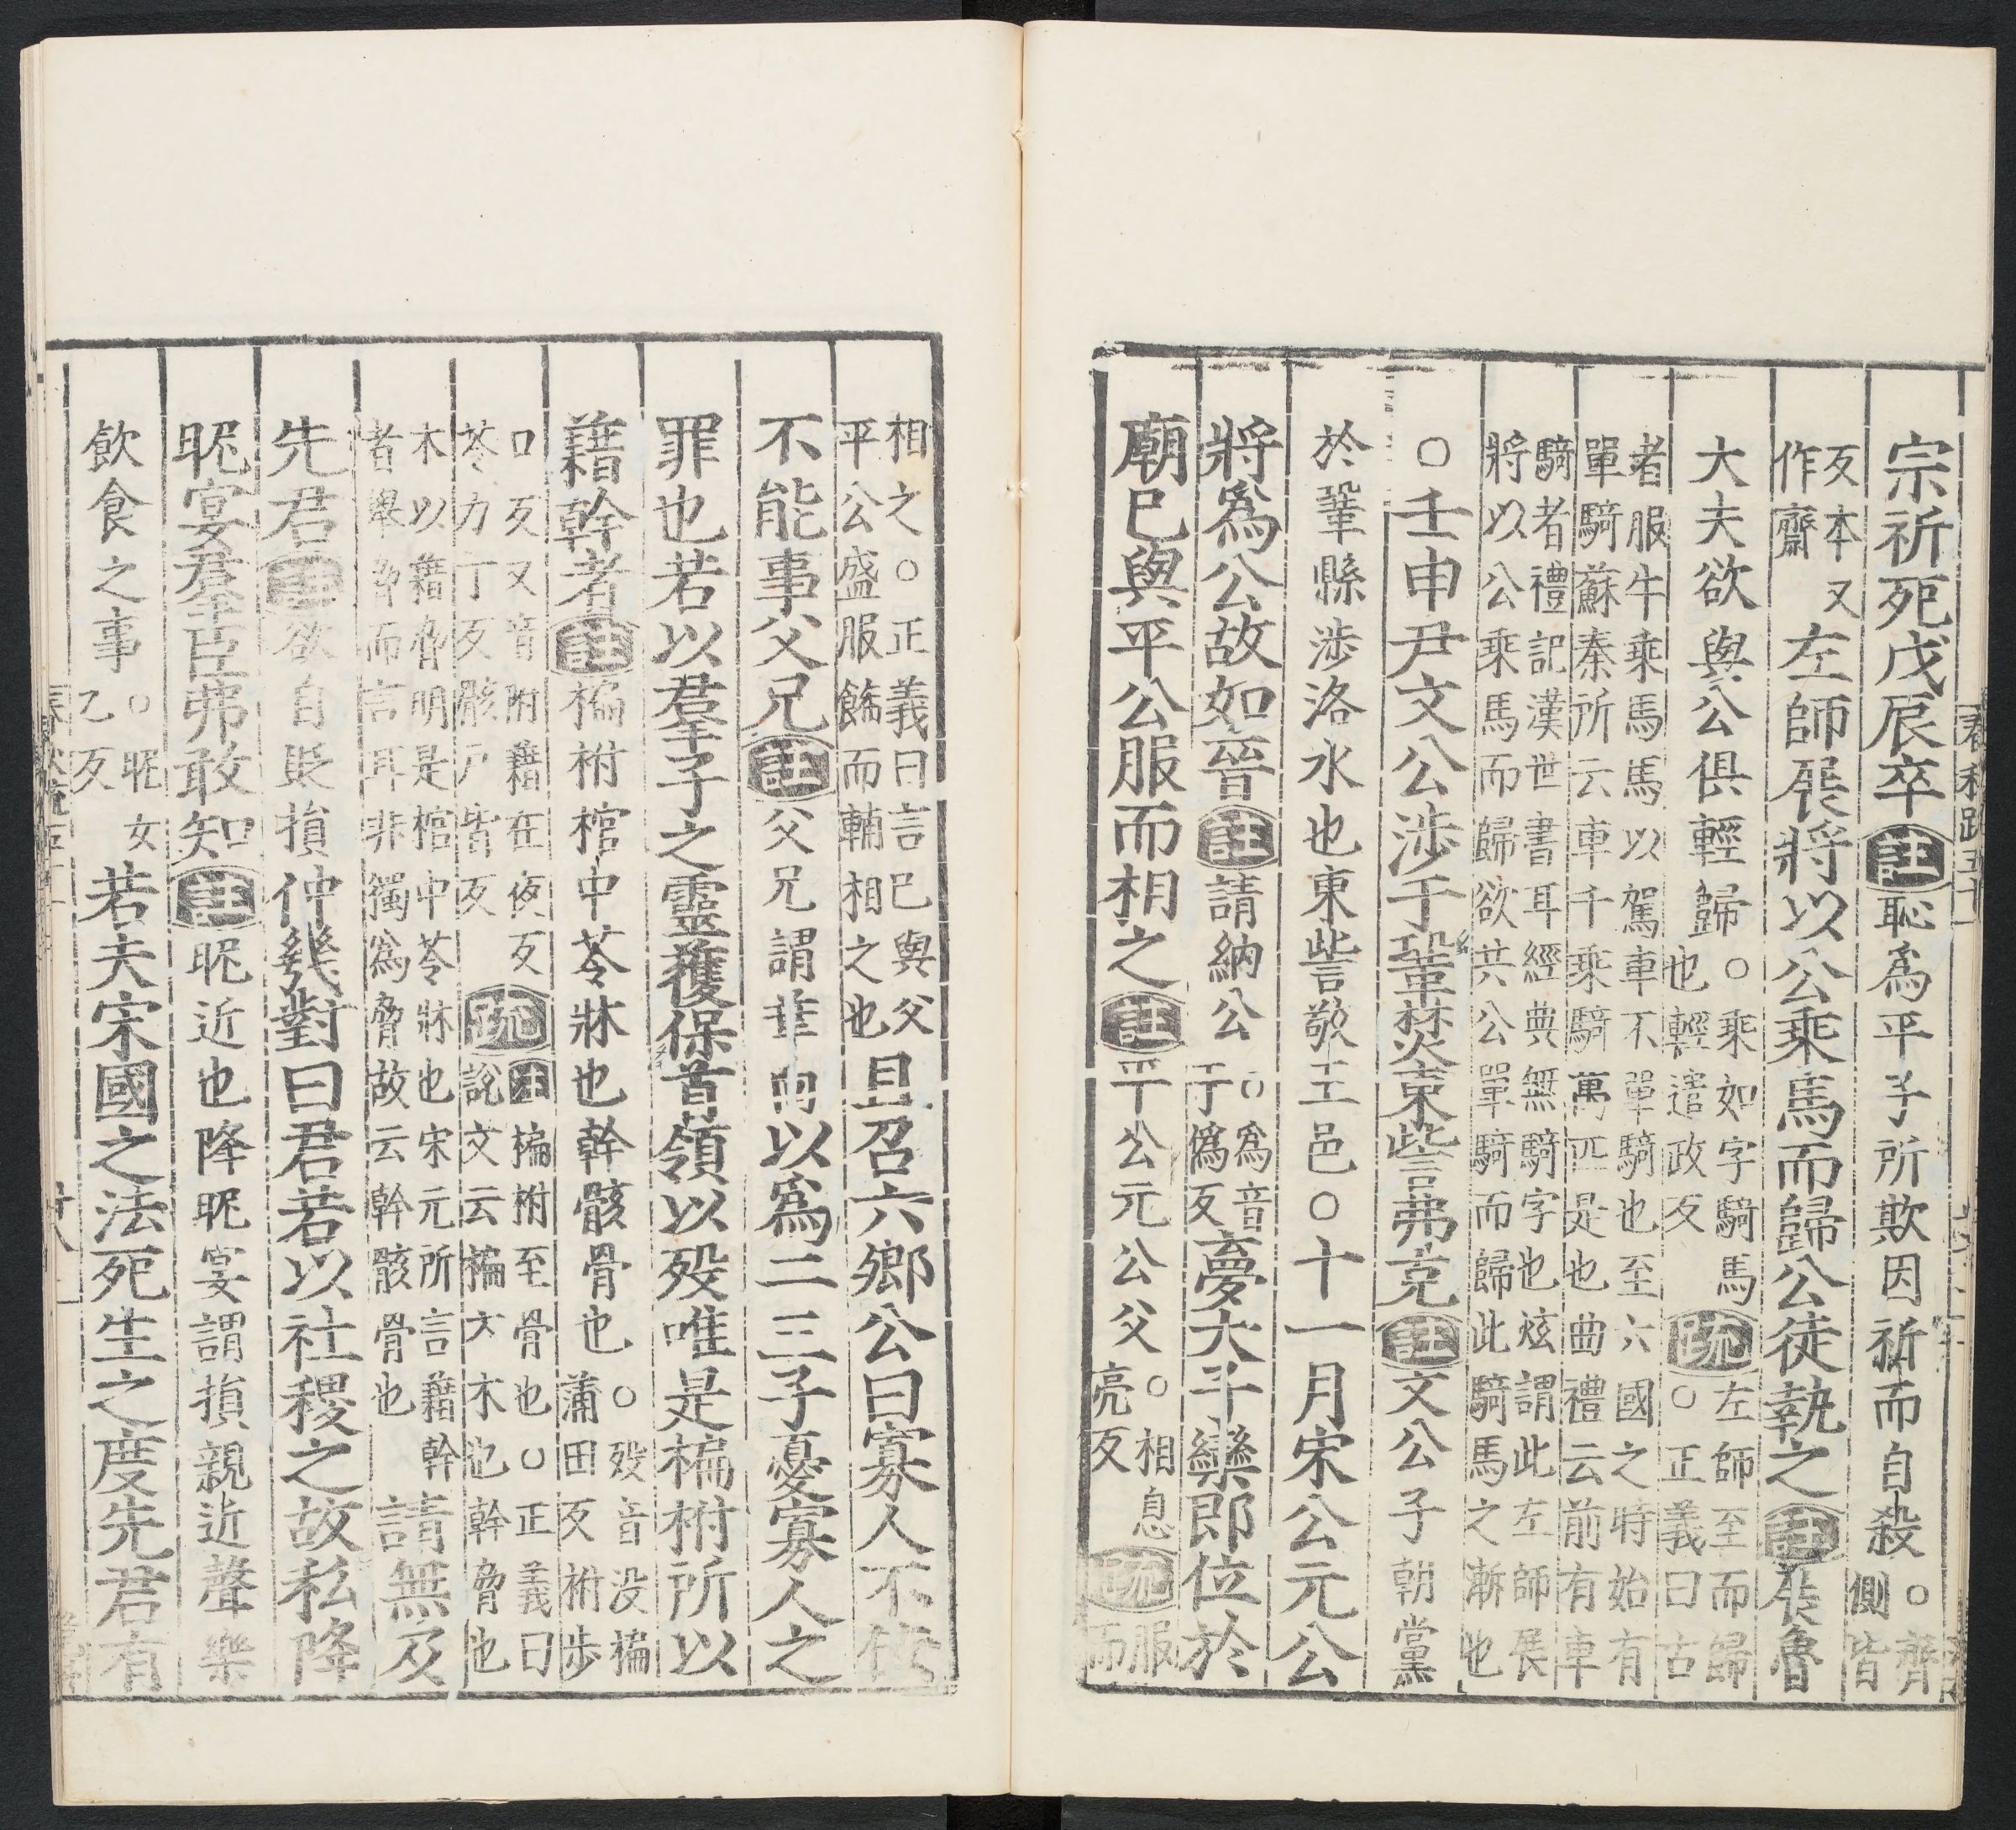 宗祈死戊辰卒註恥爲平子所欺因祈而自殺○齊側皆
反本又作齋左師展將以公乘馬而歸公徒執之註展魯
大夫欲與公俱輕歸○乘如字騎馬也輕遣政反疏左師至而歸○正義曰古
者服牛乘馬馬以駕車不單騎也至六國之時始有單騎蘇秦所云車千乘騎萬匹是也曲禮云前有車
騎者禮記漢世書耳經典無騎字也炫謂此左師展將以公乘馬而歸欲共公單騎而歸此騎馬之漸也
○壬申尹文公涉于鞏焚東訾弗克註文公子朝黨
於鞏縣涉洛水也東訾敬王邑○十一月宋公元公
將爲公故如晉註請納公○爲音于僞反夢大子欒卽位於
廟己與平公服而相之註平公元公父○相息亮反疏服而
相之○正義曰言己與父平公盛服飾而輔相之也且召六鄉公曰寡人不佞
不能事父兄註父兄謂華向以爲二三子憂寡人之
罪也若以羣子之靈獲保首領以歿唯是楄柎所以
藉幹者註楄柎棺中笭牀也幹骸骨也○歿音沒楄蒲田反柎步
口反又音附藉在夜反笭力丁反骸戶皆反疏註楄柎至骨也○正義曰說文云楄方木也幹脅也
木以藉脅明是棺中笭牀也宋元所言藉幹者舉脅而言耳非獨爲脅故云幹骸骨也請無及
先君註欲自貶損仲幾對曰君若以社稷之故私降
昵宴羣臣弗敢知註昵近也降昵宴謂損親近聲樂
飲食之事○昵女乙反若夫宋國之法死生之度先君有